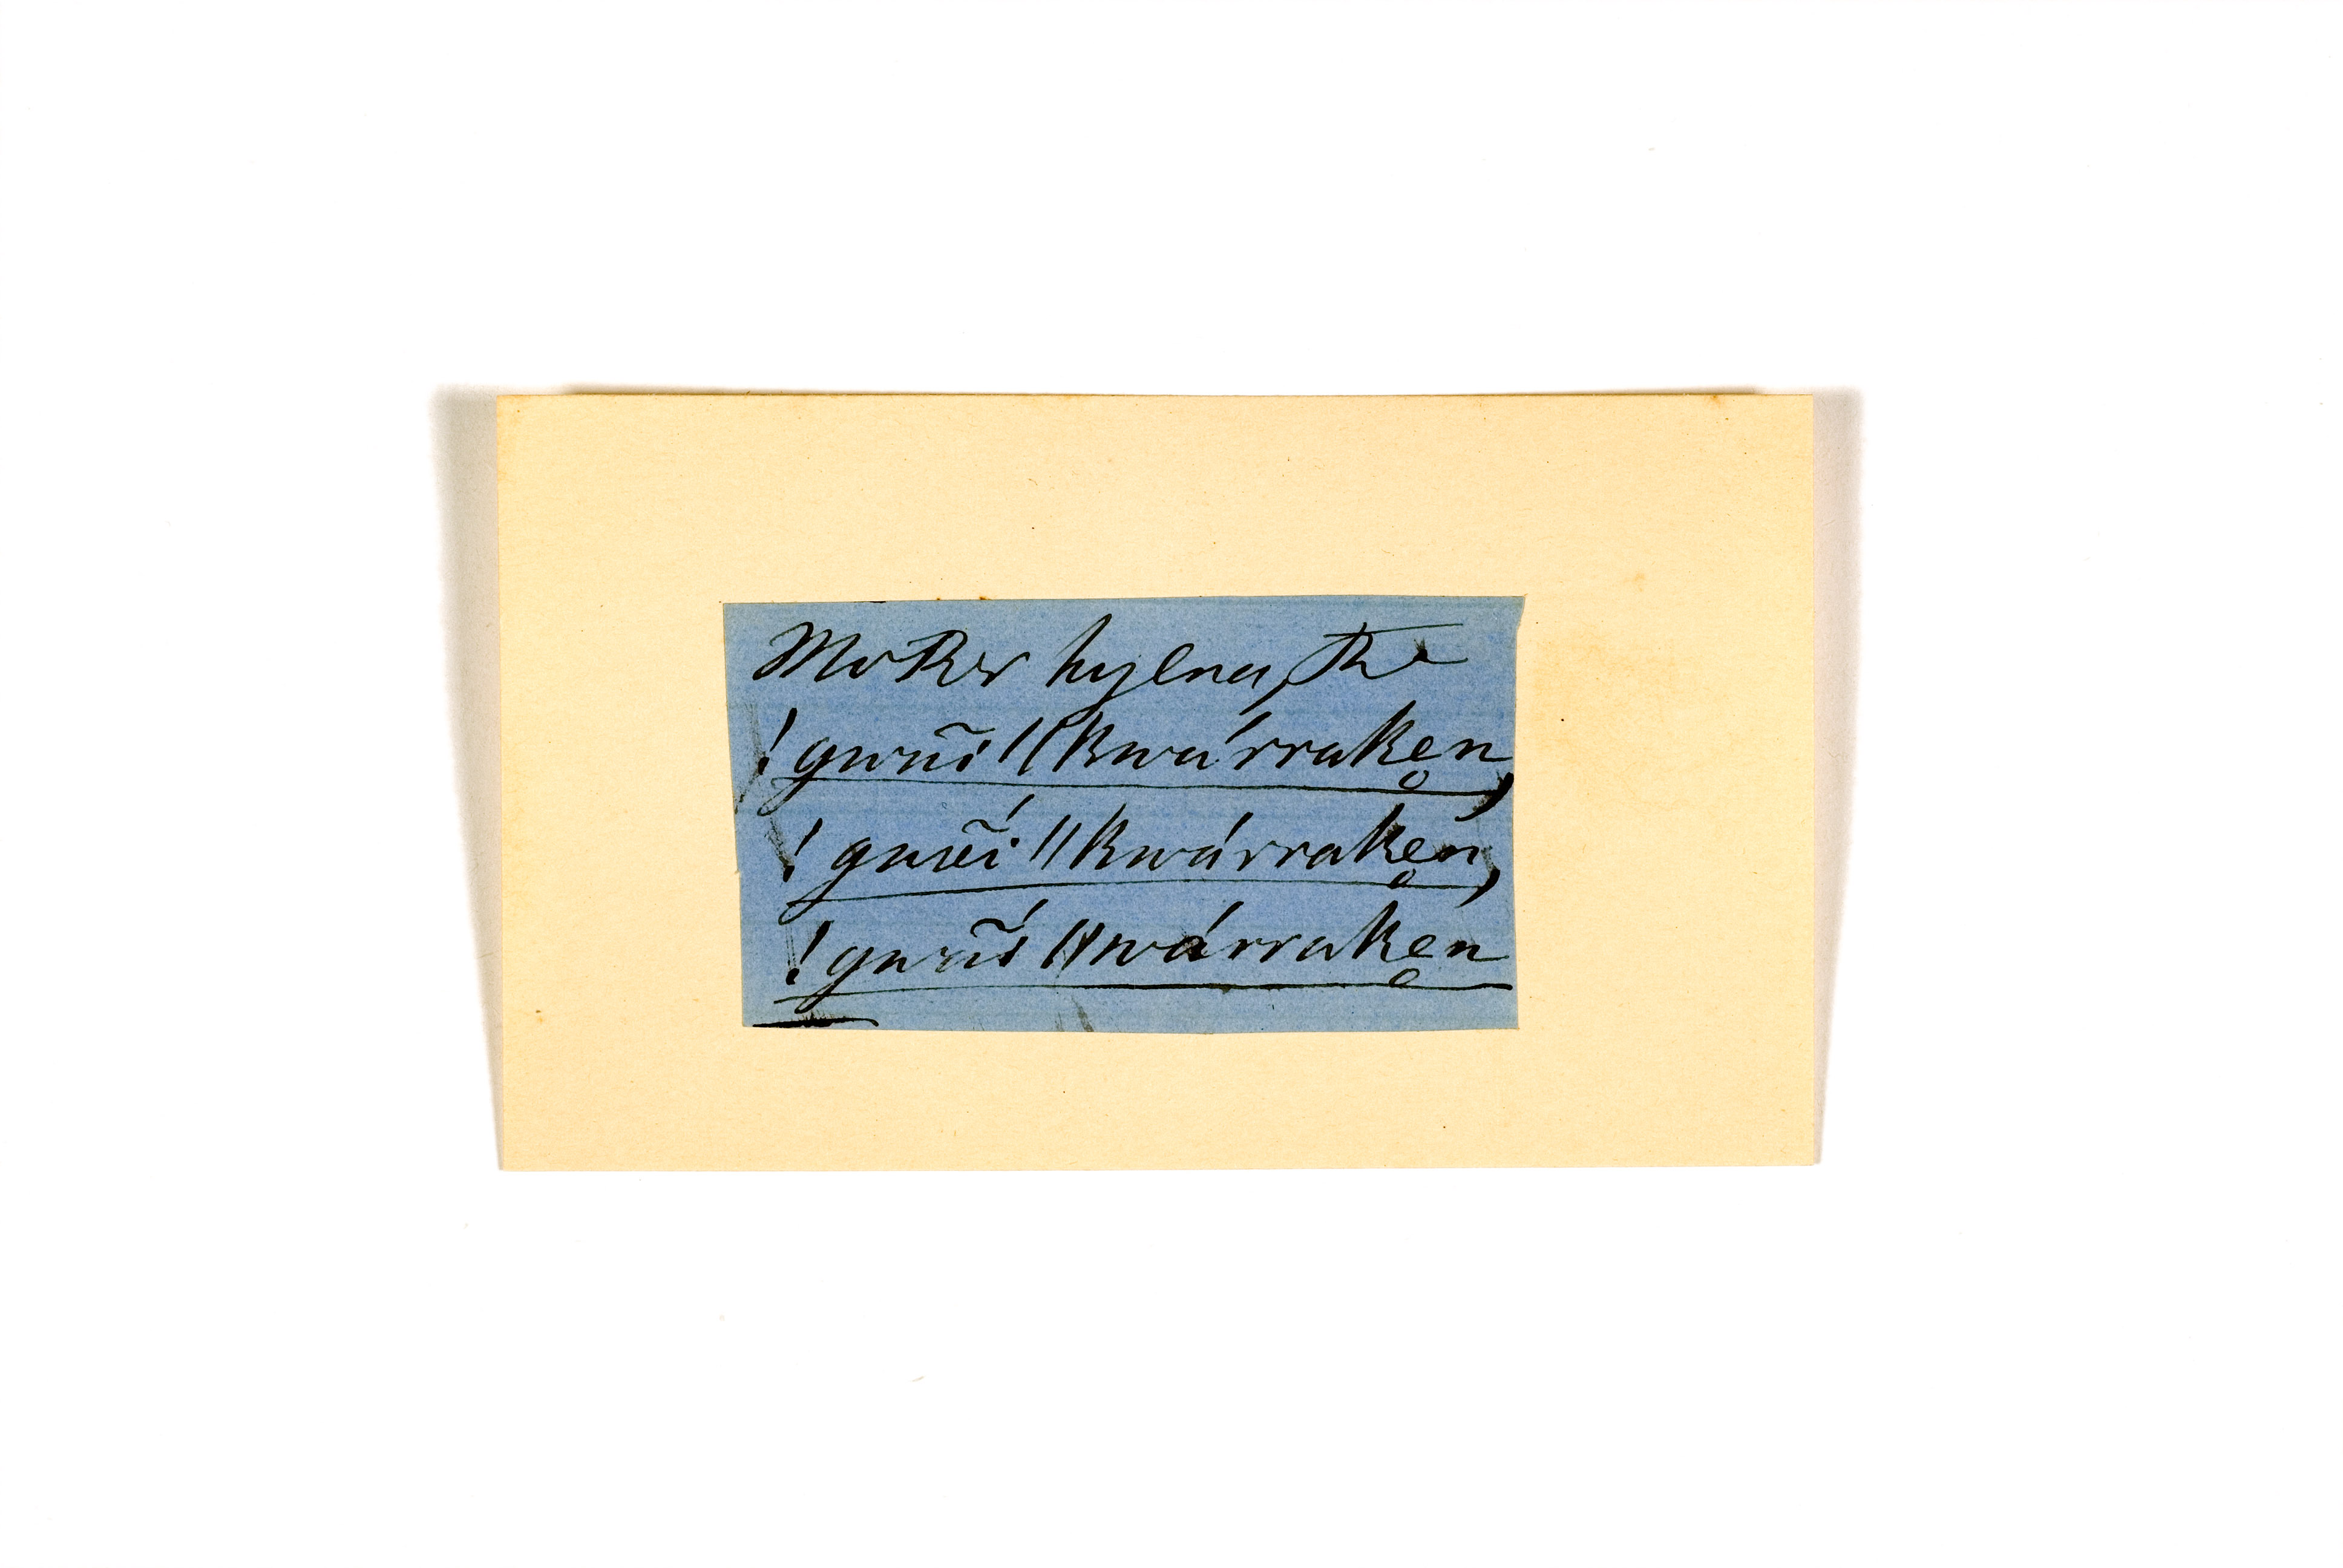 Mother hyena, the
!gwãi ǁkwárraken̥,
!gwãí ǁkwárraken̥,
!gwãí ǁkwárraken̥